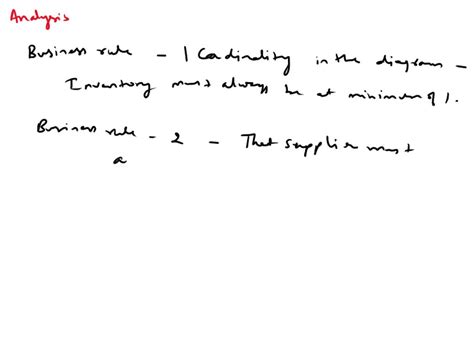 Analysis
Business rule - 1 Cardinality in the diagram -
Inventory must always be at minimum of 1.
Business rule - 2 - That supplier must
a